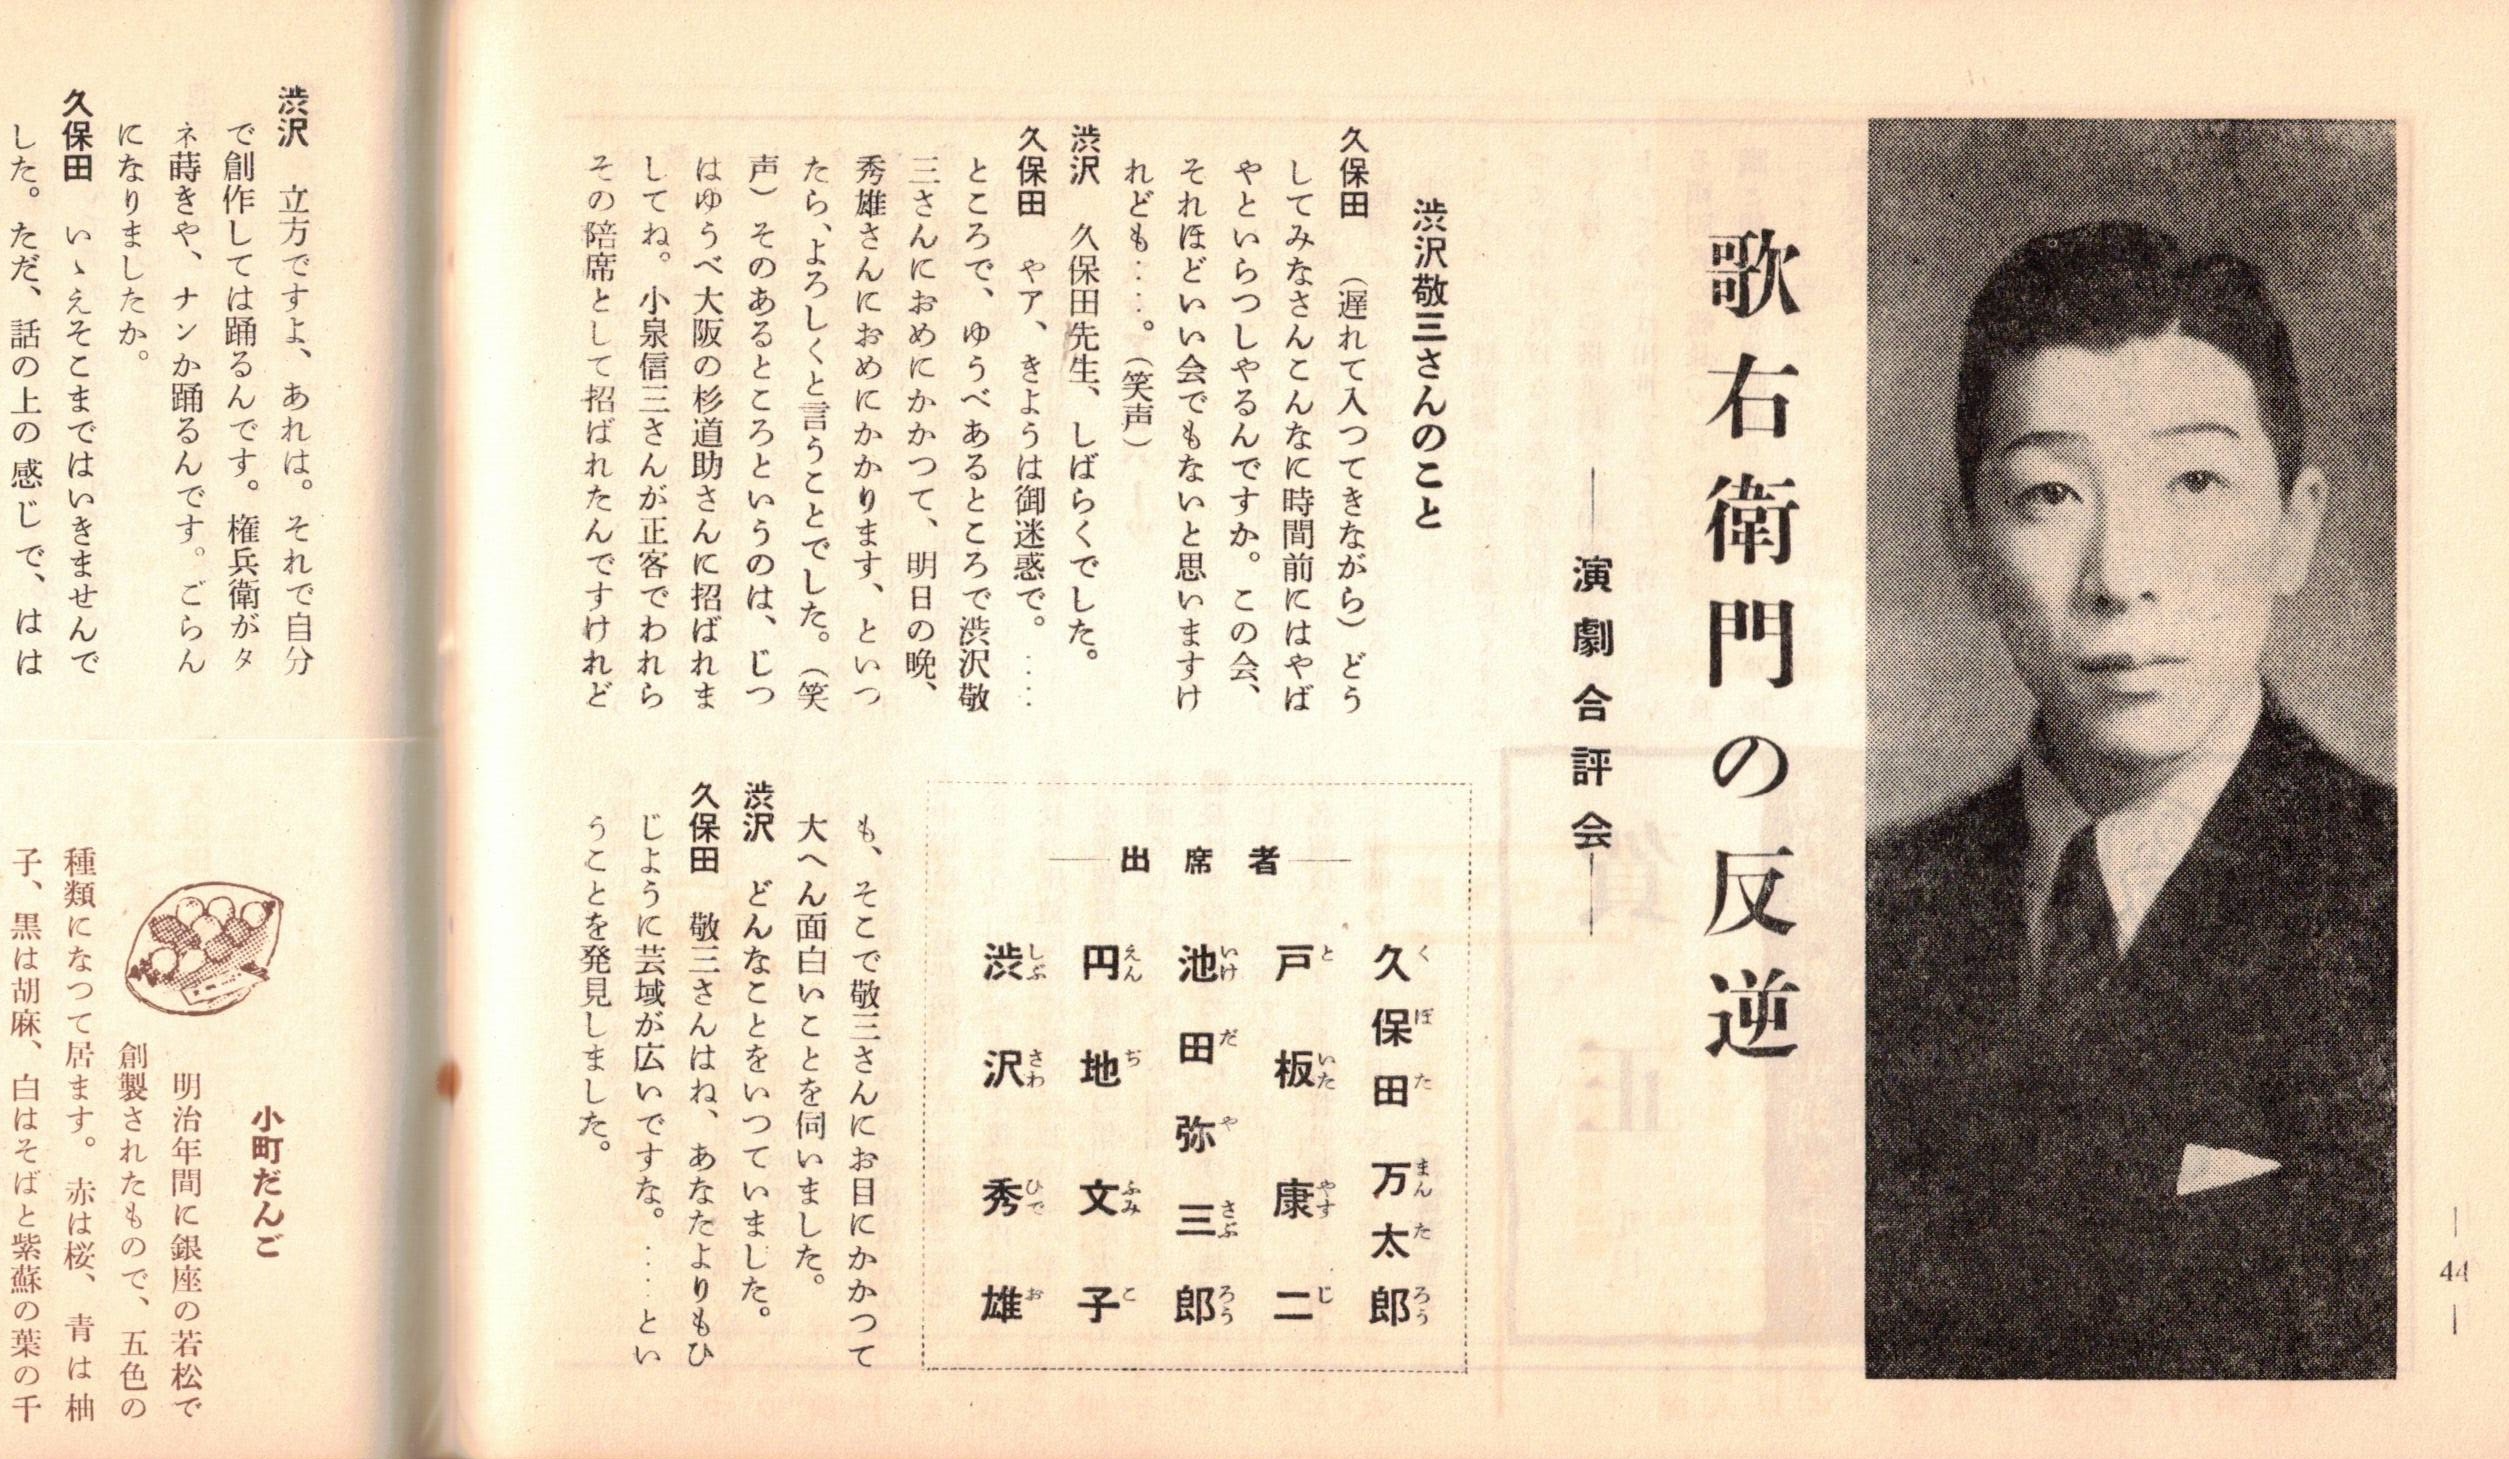 歌右衛門の反逆
――演劇合評会――
渋沢敬三さんのこと
久保田　（遅れて入つてきながら）どう
してみなさんこんなに時間前にはやば
やといらつしやるんですか。この会、
それほどいい会でもないと思いますけ
れども‥‥。（笑声）
渋沢　久保田先生、しばらくでした。
久保田　やア、きようは御迷惑で。‥‥
ところで、ゆうべあるところで渋沢敬
三さんにおめにかかつて、明日の晩、
秀雄さんにおめにかかります、といつ
たら、よろしくと言うことでした。（笑
声）そのあるところというのは、じつ
はゆうべ大阪の杉道助さんに招ばれま
してね。小泉信三さんが正客でわれら
その陪席として招ばれたんですけれど
――出席者――
久保田万太郎
くぼたまんたろう
戸板康二
といたやすじ
池田弥三郎
いけだやさぶろう
円地文子
えんぢふみこ
渋沢秀雄
しぶさわひでお
も、そこで敬三さんにお目にかかつて
大へん面白いことを伺いました。
渋沢　どんなことをいつていました。
久保田　敬三さんはね、あなたよりもひ
じように芸域が広いですな。‥‥とい
うことを発見しました。
― 44 ―
渋沢　立方ですよ、あれは。それで自分
で創作しては踊るんです。権兵衛がタ
ネ蒔きや、ナンか踊るんです。ごらん
になりましたか。
久保田　いゝえそこまではいきませんで
した。ただ、話の上の感じで、はは
小町だんご
明治年間に銀座の若松で
創製されたもので、五色の
種類になつて居ます。赤は桜、青は柚
子、黒は胡麻、白はそばと紫蘇の葉の千